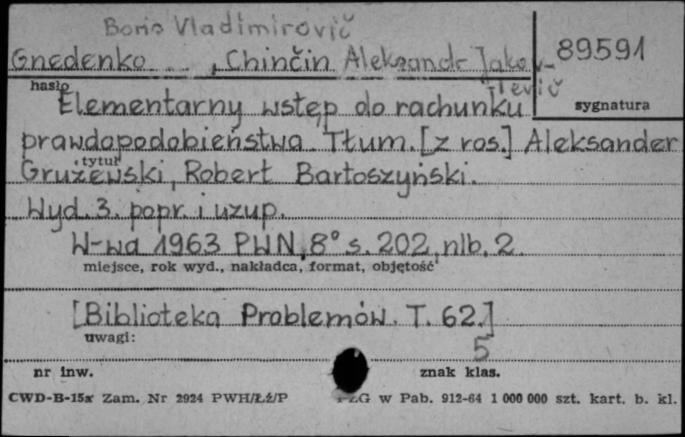 Boris Vladimirovič
Gnedenko , Chinčin Aleksandr Jakov-
levič
89591
hasło
sygnatura
Elementarny wstęp do rachunku
prawdopodobieństwa. Tłum. [z ros.] Aleksander
tytuł
Grużewski, Robert Bartoszyński.
Wyd. 3. popr. i uzup.
W-wa 1963 PWN, 8° s. 202, nlb. 2.
miejsce, rok wyd., nakładca, format, objętość
[Biblioteka Problemów. T. 62.]
uwagi:
5
nr inw.
znak klas.
CWD-B-15x Zam. Nr 2924 PWH/Łź/P
w Pab. 912-64 1 000 000 szt. kart. b. kl.